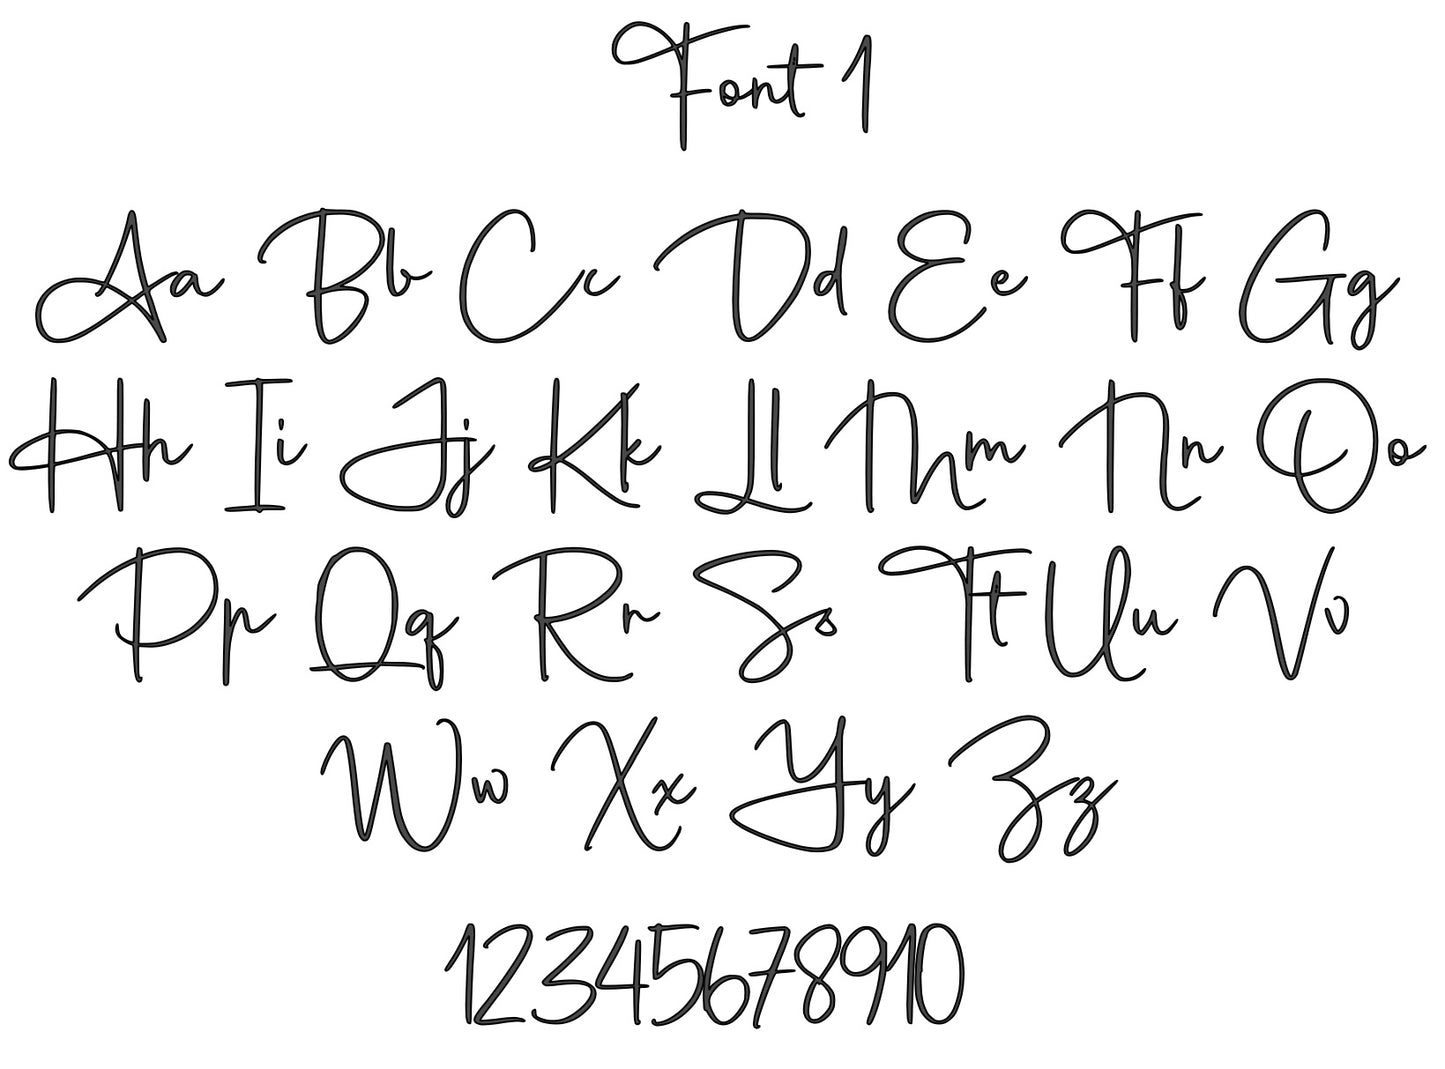 Font 1
Aa Bb Cc Dd Ee Ff Gg
Hh Ii Jj Kk Ll Mm Nn Oo
Pp Qq Rr Ss Tt Uu Vv
Ww Xx Yy Zz
12345678910